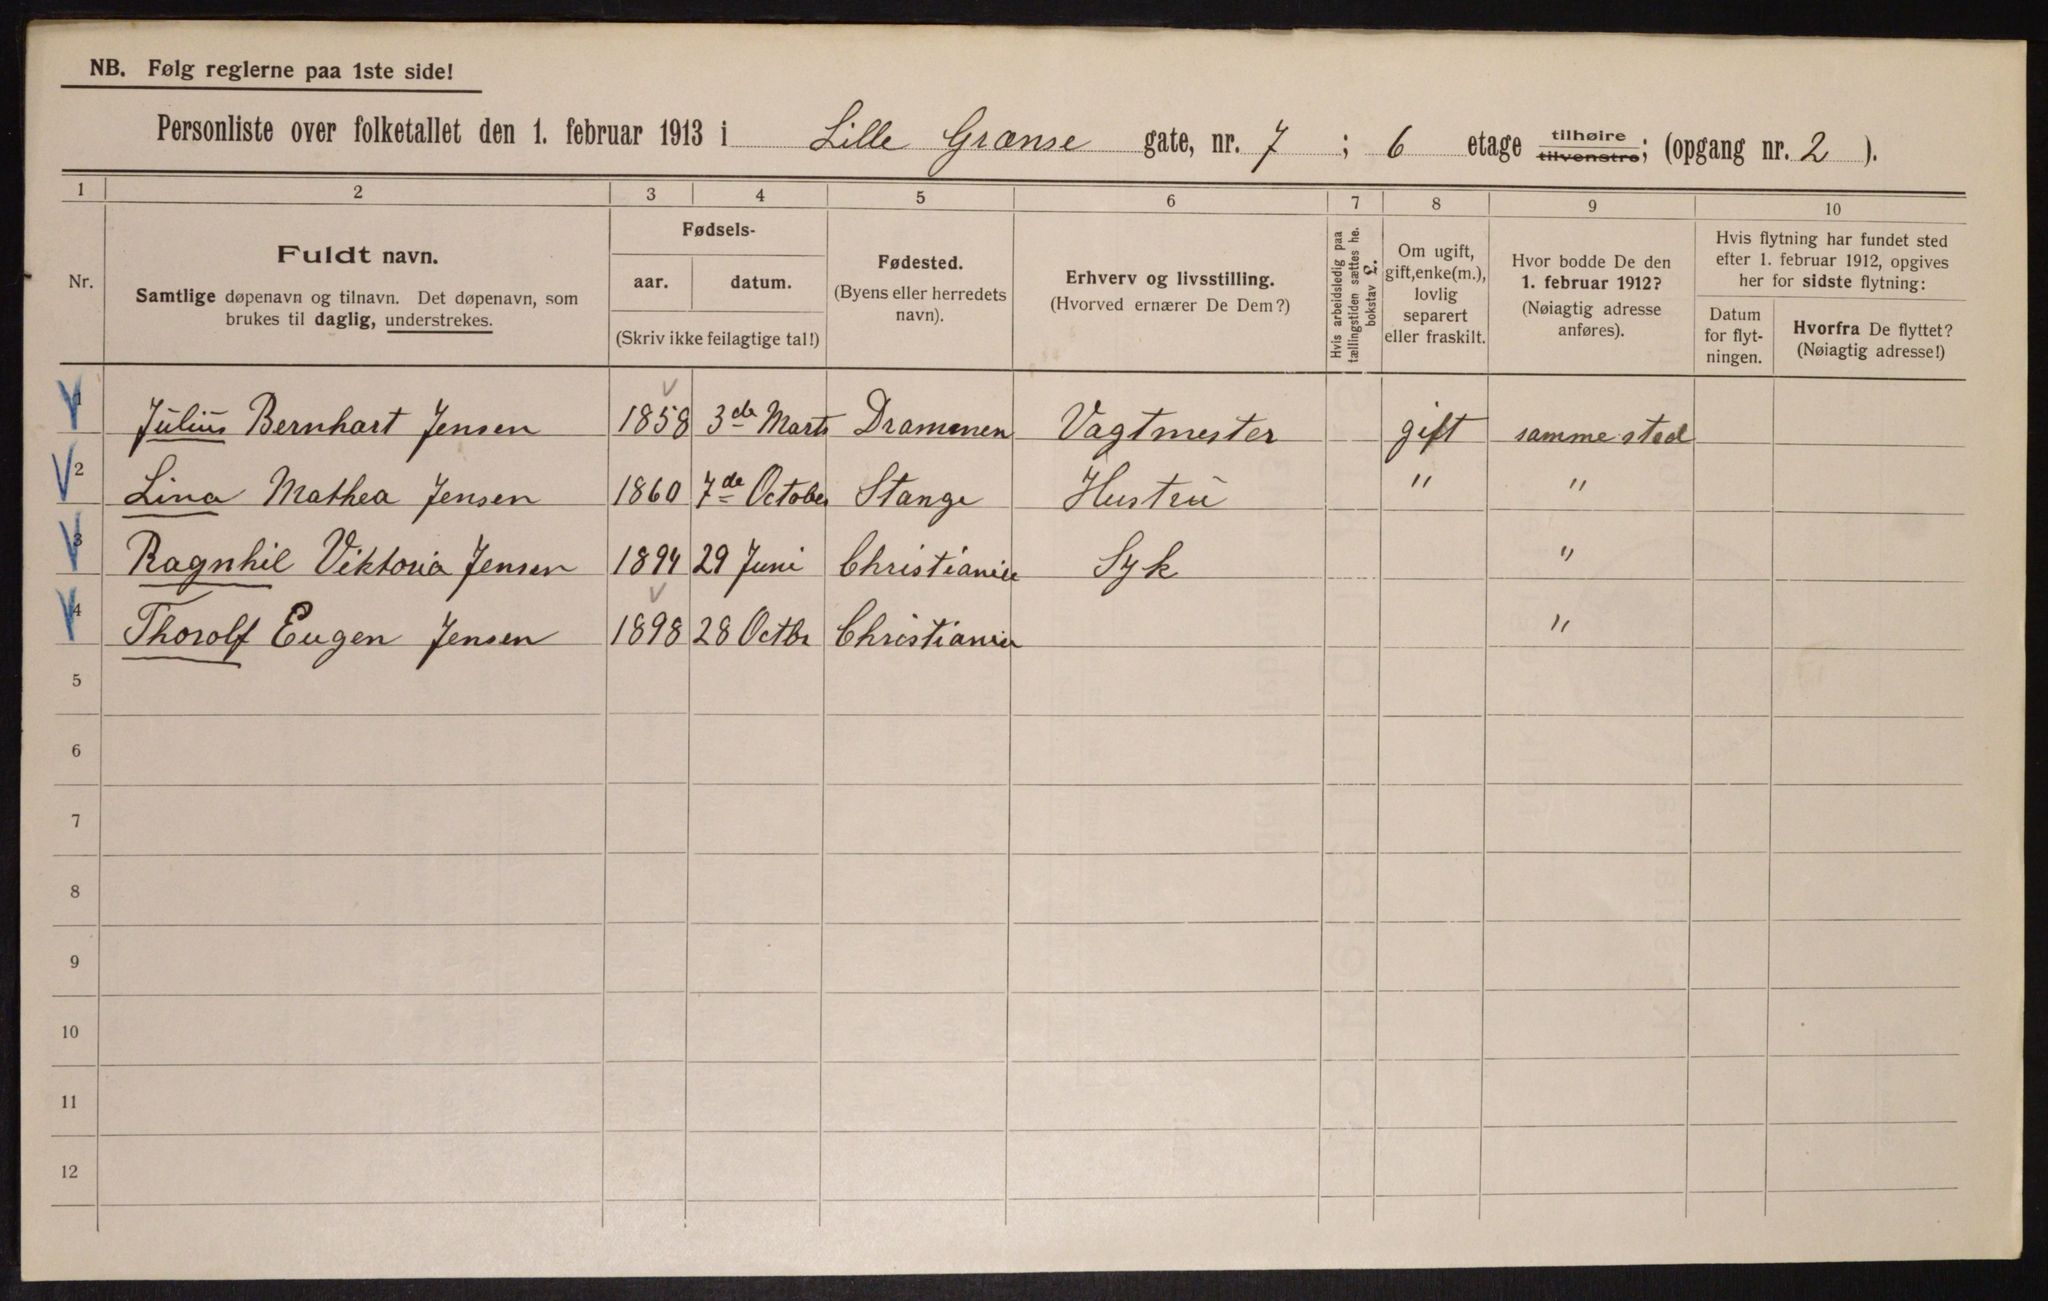 NB. Følg reglerne paa 1ste side!
Personliste over folketallet den 1. februar 1913 i Lille Grænse gate, nr. 7 ; 6 etage tilhøire tilvenstre; (opgang nr. 2 ).
1 2 3 4 5 6 7 8 9 10
Nr.
Fuldt navn.
Samtlige døpenavn og tilnavn. Det døpenavn, som
brukes til daglig, understrekes.
Fødsels-
aar. datum.
(Skriv ikke feilagtige tal!)
Fødested.
(Byens eller herredets
navn).
Erhverv og livsstilling.
(Hvorved ernærer De Dem?)
Hvis arbeidsledig paa
tællingstiden sættes he.
bokstav L.
Om ugift,
gift, enke(m.),
lovlig
separert
eller fraskilt.
Hvor bodde De den
1. februar 1912?
(Nøiagtig adresse
anføres).
Hvis flytning har fundet sted
efter 1. februar 1912, opgives
her for sidste flytning:
Datum
for flyt-
ningen.
Hvorfra De flyttet?
(Nøiagtig adresse!)
1 Julius Bernhart Jensen 1858 3de Marts Drammen Vagtmester gift samme sted
2 Lina Mathea Jensen 1860 7de October Stange Hustru " "
3 Ragnhil Viktoria Jensen 1894 29 Juni Christiania Syk "
4 Thorolf Eugen Jensen 1898 28 Octbr Christiania "
5
6
7
8
9
10
11
12